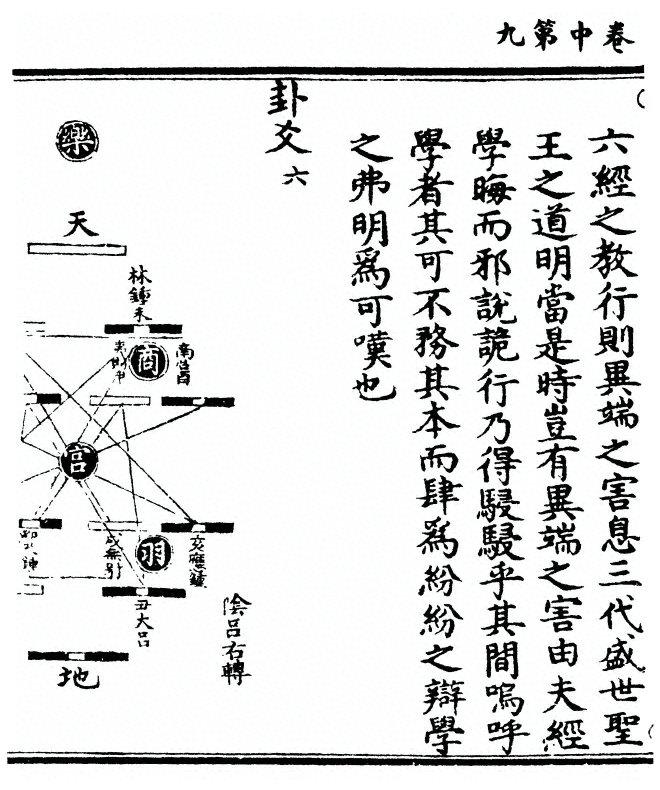 卷中第九
六經之教行則異端之害息三代盛世聖
王之道明當是時豈有異端之害由夫經
學晦而邪說詭行乃得駸駸乎其間嗚呼
學者其可不務其本而肆爲紛紛之辯學
之弗明爲可嘆也
卦爻六
樂
天
林鍾未
商
南呂酉
宮
羽
亥應鍾
丑大呂
陰呂右轉
地